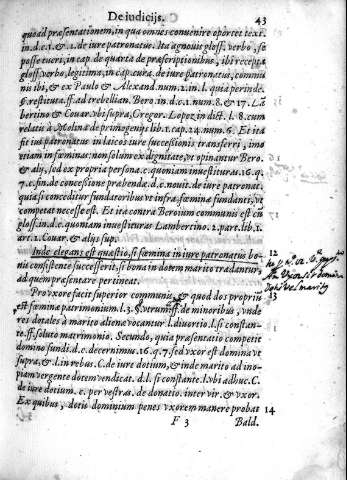 De iudicijs. 43
quoad præsentationem, in qua omnes conuenire oportet text.
in.d.c.1.& .2. de iure patronatus. Ita agnouit gloss. verbo, se
posse tueri, in cap. de quarta de præscriptionibus, ibi recepta
gloss. verbo, legitima, in cap. cura. de iure patronatus, commu
nis ibi, & ex Paulo & Alexand. num. 2. in. l. quia perinde.
§. restituta. ff. ad trebellian. Bero. in d.c.1. num. 8. & 17. La
bertino & Couar. vbi supra, Gregor. Lopez in dict. l. 8. cum
relatis à Molina de primogenijs lib. 1. cap. 24. num. 6. Et ita
fit ius patronatus in laicos iure successionis transferri, imo
etiam in fæminas: non solum ex dignitate, vt opinantur Bero.
& alij, sed ex propria persona. c. quoniam inuestituras. 16. q.
7. c. fin. de concessione præbenda. d. c. nouit. de iure patronat.
quia si conceditur fundatoribus vt infra, fæmina fundanti, vt
competat necesse est. Et ita contra Beroium communis est cū
gloss. in. d. c. quoniam inuestituras Lambertino. 2. part. lib. 1.
art. 1. Couar. & alijs sup.
Inde elegans est quæstio, si fæmina in iure patronatus bo- 12
nis consistente successerit, si bona in dotem marito tradantur,
ad quem præsentare pertineat.
Pro vxore facit superior communis, & quod dos propriū 13
est fæminæ patrimonium. l. 3. §. verum. ff. de minoribus, vnde
res dotales à marito alienæ vocantur. l. diuortio. l. si constan-
te. ff. soluto matrimonio. Secundo, quia præsentatio competit
domino fundi. d. c. decernimus. 16. q. 7. sed vxor est domina vt
supra, & l. in rebus. C. de iure dotium, & inde marito ad ino-
piam vergente dotem vendicat. d. l. si constante. l. vbi adhuc. C.
de iure dotium. c. per vestras. de donatio. inter vir. & vxor.
Ex quibus, dotis dominium penes vxorem manere probat 14
F 3 Bald.